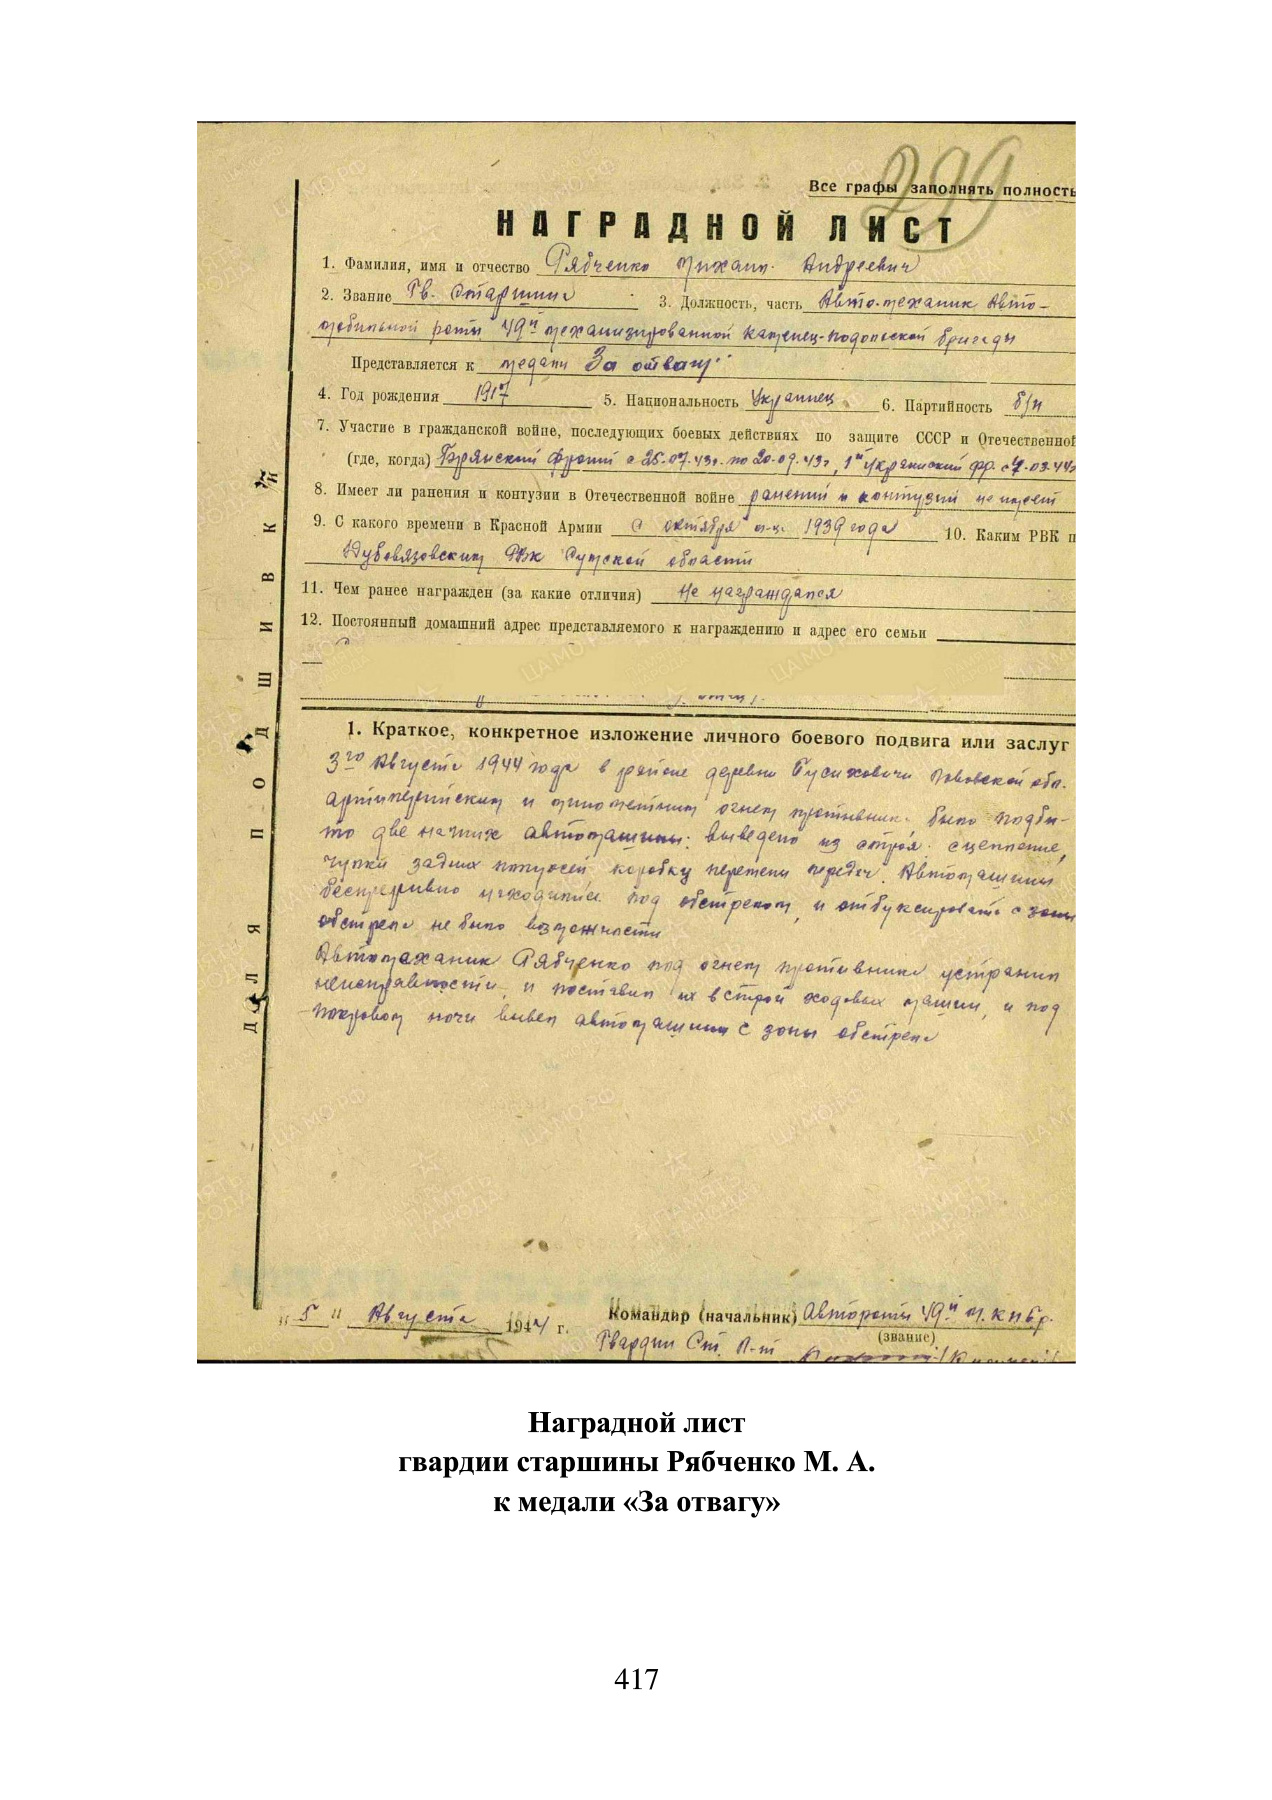 299
Все графы заполнять полность
НАГРАДНОЙ ЛИСТ
1. Фамилия, имя и отчество Рябченко Михаил Андреевич
2. Звание Гв. Старшина 3. Должность, часть Авто-механик Авто-
мобильной роты 49й механизированной Каменец-Подольской бригады
Представляется к медали За отвагу
4. Год рождения 1917 5. Национальность Украинец 6. Партийность б/п
7. Участие в гражданской войне, последующих боевых действиях по защите СССР и Отечественной
(где, когда) Брянский фронт с 25.07.43г. по 20.09.43г, 1й Украинский фр. с 4.03.44г
8. Имеет ли ранения и контузии в Отечественной войне ранений и контузий не имеет
9. С какого времени в Красной Армии с октября м-ца 1939 года 10. Каким РВК п
Дубовязовским РВК Сумской области
11. Чем ранее награжден (за какие отличия) Не награждался
12. Постоянный домашний адрес представляемого к награждению и адрес его семьи
1. Краткое, конкретное изложение личного боевого подвига или заслуг
3го Августа 1944 года в районе деревни Бусиховичи Львовской обл.
артиллерийским и минометным огнем противника было подби-
то две наших автомашины: выведено из строя сцепление,
чулки задних полуосей коробку перемены передач. Автомашины
беспрерывно находились под обстрелом, и отбуксировать с зоны
обстрела не было возможности
Автомеханик Рябченко под огнем противника устранил
неисправности, и поставил их в строй ходовых машин, и под
покровом ночи вывел автомашины с зоны обстрела
"5" Августа 1944 г. Командир (начальник) Автороты 49й м.кпбр.
(звание)
Гвардии Ст. Л-т
ДЛЯ ПОДШИВКИ
Наградной лист
гвардии старшины Рябченко М. А.
к медали «За отвагу»
417